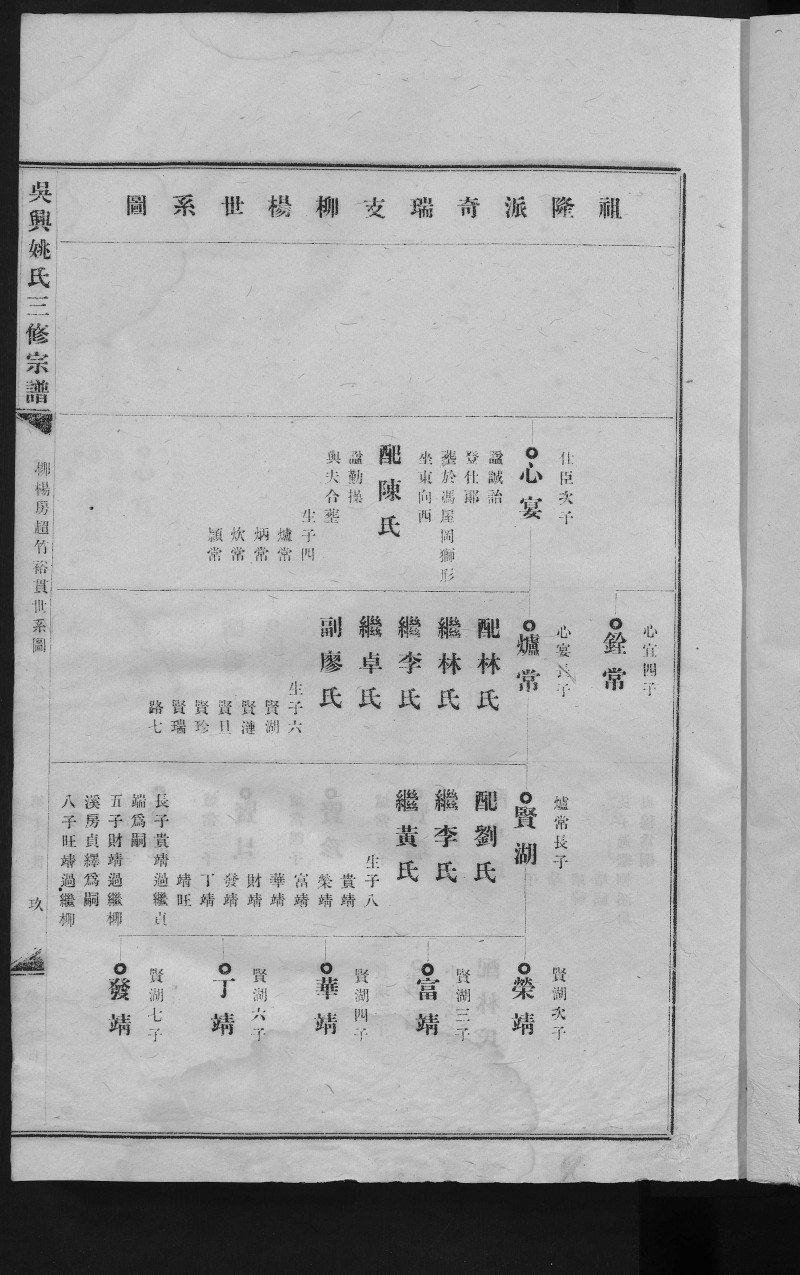 祖隆派奇瑞支柳楊世系圖
仕臣次子
心宴
諡誠詒
登仕郎
塟於馮屋岡獅形
坐東向西
配陳氏
諡勤操
與夫合塟
生子四
爐常
炳常
炊常
潁常
心宜四子
銓常
心宴長子
爐常
配林氏
繼林氏
繼李氏
繼卓氏
副廖氏
生子六
賢湖
賢漣
賢旦
賢珍
賢瑞
路七
爐常長子
賢湖
配劉氏
繼李氏
繼黃氏
生子八
貴靖
榮靖
富靖
華靖
財靖
發靖
丁靖
靖旺
長子貴靖過繼貞
端爲嗣
五子財靖過繼柳
溪房貞繹爲嗣
八子旺靖過繼柳
賢湖次子
榮靖
賢湖三子
富靖
賢湖四子
華靖
賢湖六子
丁靖
賢湖七子
發靖
吳興姚氏三修宗譜
柳楊房超竹裕貫世系圖
玖